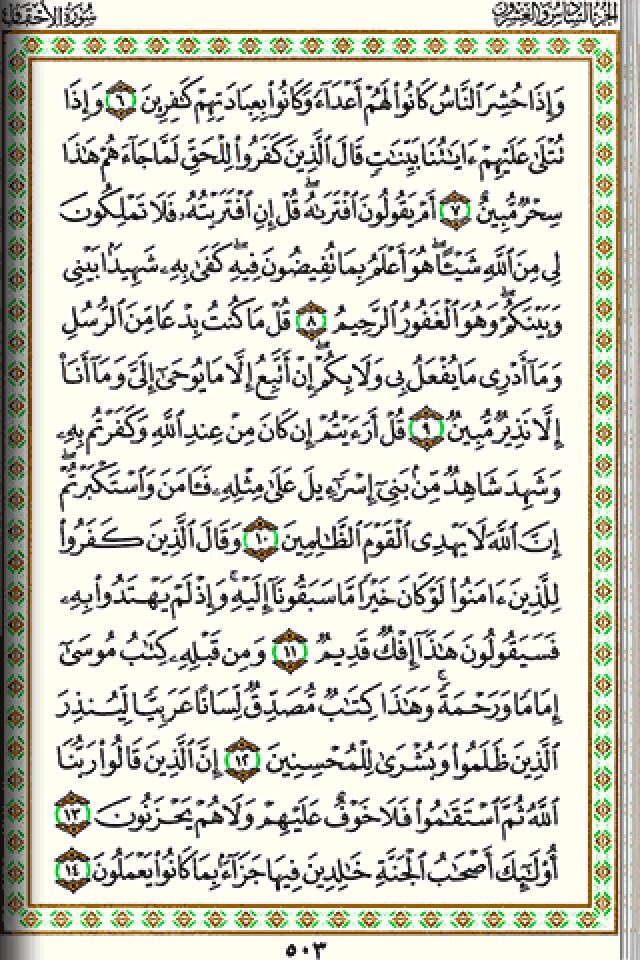 سُورَةُ الأَحْقَافِ الجُزْءُ السَّادِسُ وَالعِشْرُونَ
وَإِذَا حُشِرَ ٱلنَّاسُ كَانُوا۟ لَهُمْ أَعْدَآءً وَكَانُوا۟ بِعِبَادَتِهِمْ كَـٰفِرِينَ ٦ وَإِذَا
تُتْلَىٰ عَلَيْهِمْ ءَايَـٰتُنَا بَيِّنَـٰتٍ قَالَ ٱلَّذِينَ كَفَرُوا۟ لِلْحَقِّ لَمَّا جَآءَهُمْ هَـٰذَا
سِحْرٌ مُّبِينٌ ٧ أَمْ يَقُولُونَ ٱفْتَرَىٰهُ ۖ قُلْ إِنِ ٱفْتَرَيْتُهُۥ فَلَا تَمْلِكُونَ
لِى مِنَ ٱللَّهِ شَيْـًٔا ۖ هُوَ أَعْلَمُ بِمَا تُفِيضُونَ فِيهِ ۖ كَفَىٰ بِهِۦ شَهِيدًۢا بَيْنِى
وَبَيْنَكُمْ ۖ وَهُوَ ٱلْغَفُورُ ٱلرَّحِيمُ ٨ قُلْ مَا كُنتُ بِدْعًا مِّنَ ٱلرُّسُلِ
وَمَآ أَدْرِى مَا يُفْعَلُ بِى وَلَا بِكُمْ ۖ إِنْ أَتَّبِعُ إِلَّا مَا يُوحَىٰٓ إِلَىَّ وَمَآ أَنَا۠
إِلَّا نَذِيرٌ مُّبِينٌ ٩ قُلْ أَرَءَيْتُمْ إِن كَانَ مِنْ عِندِ ٱللَّهِ وَكَفَرْتُم بِهِۦ
وَشَهِدَ شَاهِدٌ مِّنۢ بَنِىٓ إِسْرَٰٓءِيلَ عَلَىٰ مِثْلِهِۦ فَـَٔامَنَ وَٱسْتَكْبَرْتُمْ ۖ
إِنَّ ٱللَّهَ لَا يَهْدِى ٱلْقَوْمَ ٱلظَّـٰلِمِينَ ١٠ وَقَالَ ٱلَّذِينَ كَفَرُوا۟
لِلَّذِينَ ءَامَنُوا۟ لَوْ كَانَ خَيْرًا مَّا سَبَقُونَآ إِلَيْهِ ۚ وَإِذْ لَمْ يَهْتَدُوا۟ بِهِۦ
فَسَيَقُولُونَ هَـٰذَآ إِفْكٌ قَدِيمٌ ١١ وَمِن قَبْلِهِۦ كِتَـٰبُ مُوسَىٰٓ
إِمَامًا وَرَحْمَةً ۚ وَهَـٰذَا كِتَـٰبٌ مُّصَدِّقٌ لِّسَانًا عَرَبِيًّا لِّيُنذِرَ
ٱلَّذِينَ ظَلَمُوا۟ وَبُشْرَىٰ لِلْمُحْسِنِينَ ١٢ إِنَّ ٱلَّذِينَ قَالُوا۟ رَبُّنَا
ٱللَّهُ ثُمَّ ٱسْتَقَـٰمُوا۟ فَلَا خَوْفٌ عَلَيْهِمْ وَلَا هُمْ يَحْزَنُونَ ١٣
أُو۟لَـٰٓئِكَ أَصْحَـٰبُ ٱلْجَنَّةِ خَـٰلِدِينَ فِيهَا جَزَآءًۢ بِمَا كَانُوا۟ يَعْمَلُونَ ١٤
٥٠٣